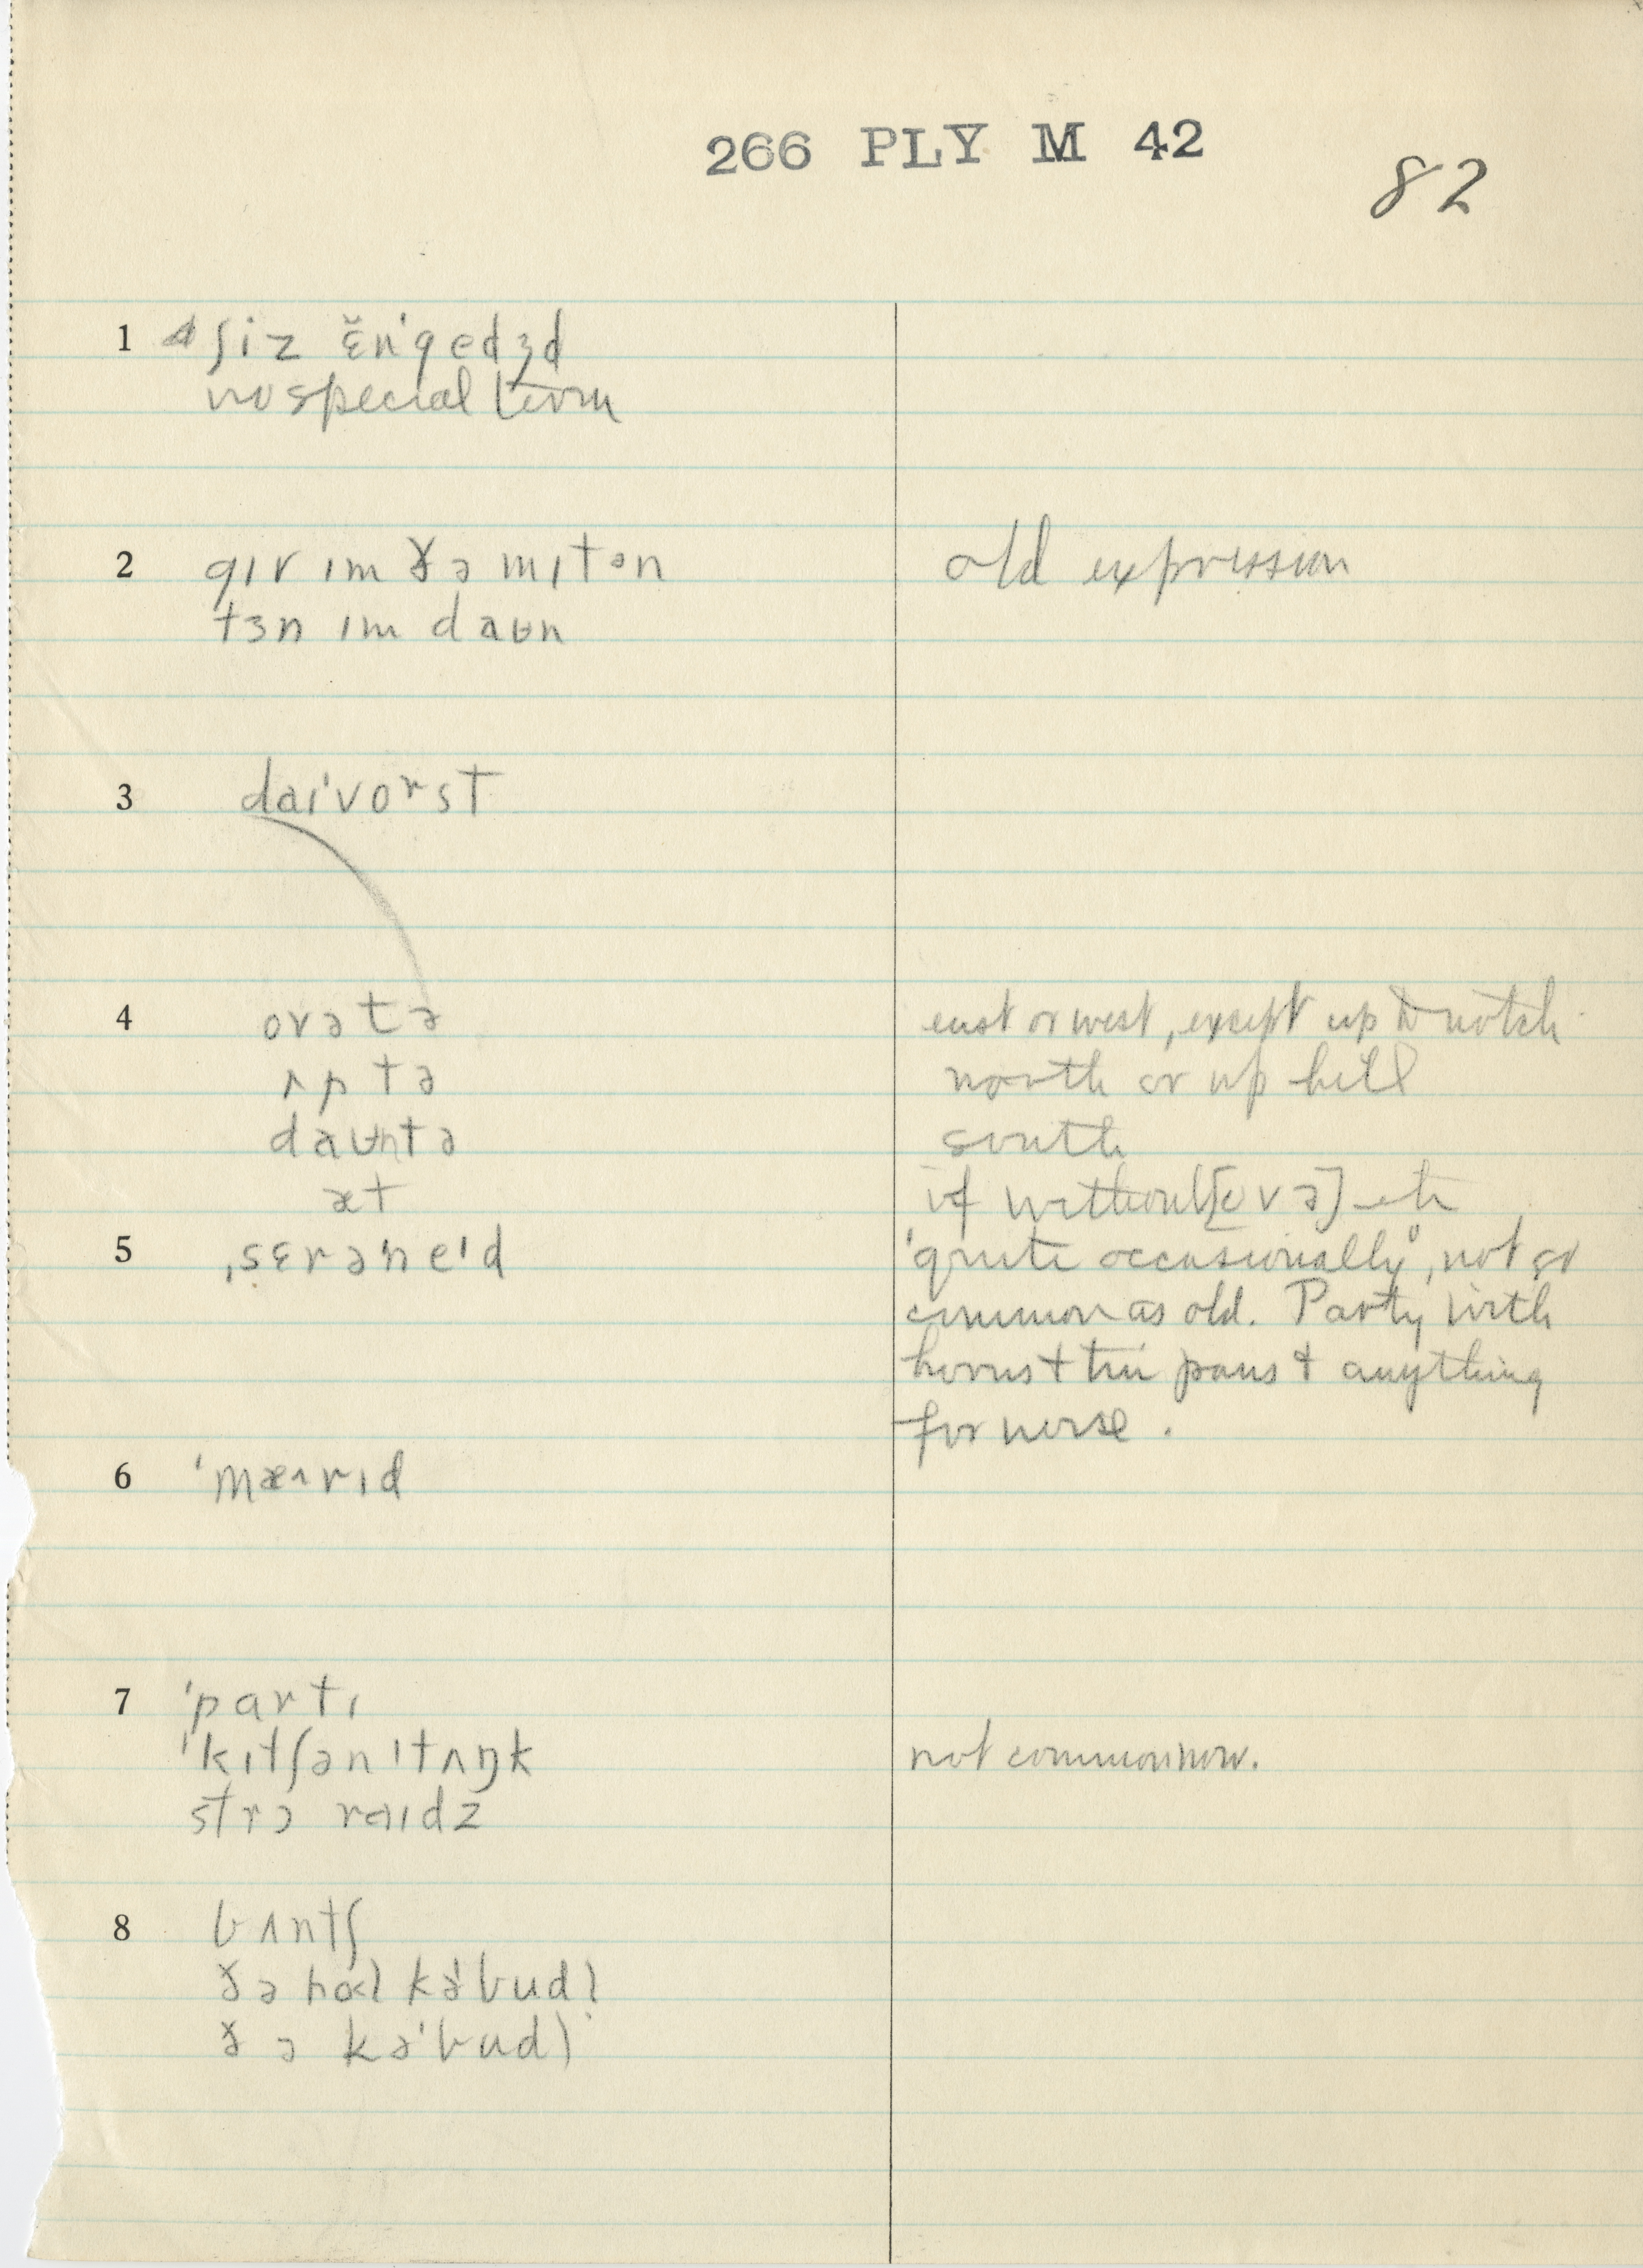 266 PLY M 42
82
1 ʃiz ɛ̆n'gedʒd
no special term
2 gɪv ɪm ðə mɪtən old expression
tɜn ɪm daʊn
3 daɪ'vorst
4 ovətə east or west, except up to notch
ʌptə north or up hill
daʊntə south
æt if without [ovə] etc
5 ˌsɛrə'ne'd 'quite occasionally', not so
common as old. Party with
horns + tin pans + anything
for noise.
6 'mæʌrɪd
7 'partɪ
'kɪtʃən'tʌŋk not common now.
strɔ raɪdz
8 bʌntʃ
ðə hol kə'budl
ðə kə'budl